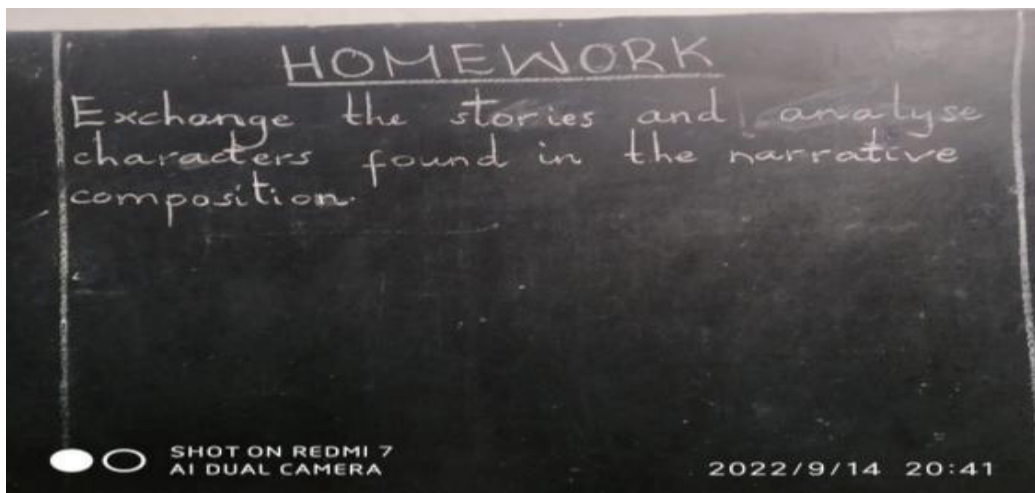 HOMEWORK
Exchange the stories and analyse
characters found in the narrative
composition.
SHOT ON REDMI 7
AI DUAL CAMERA
2022/9/14 20:41